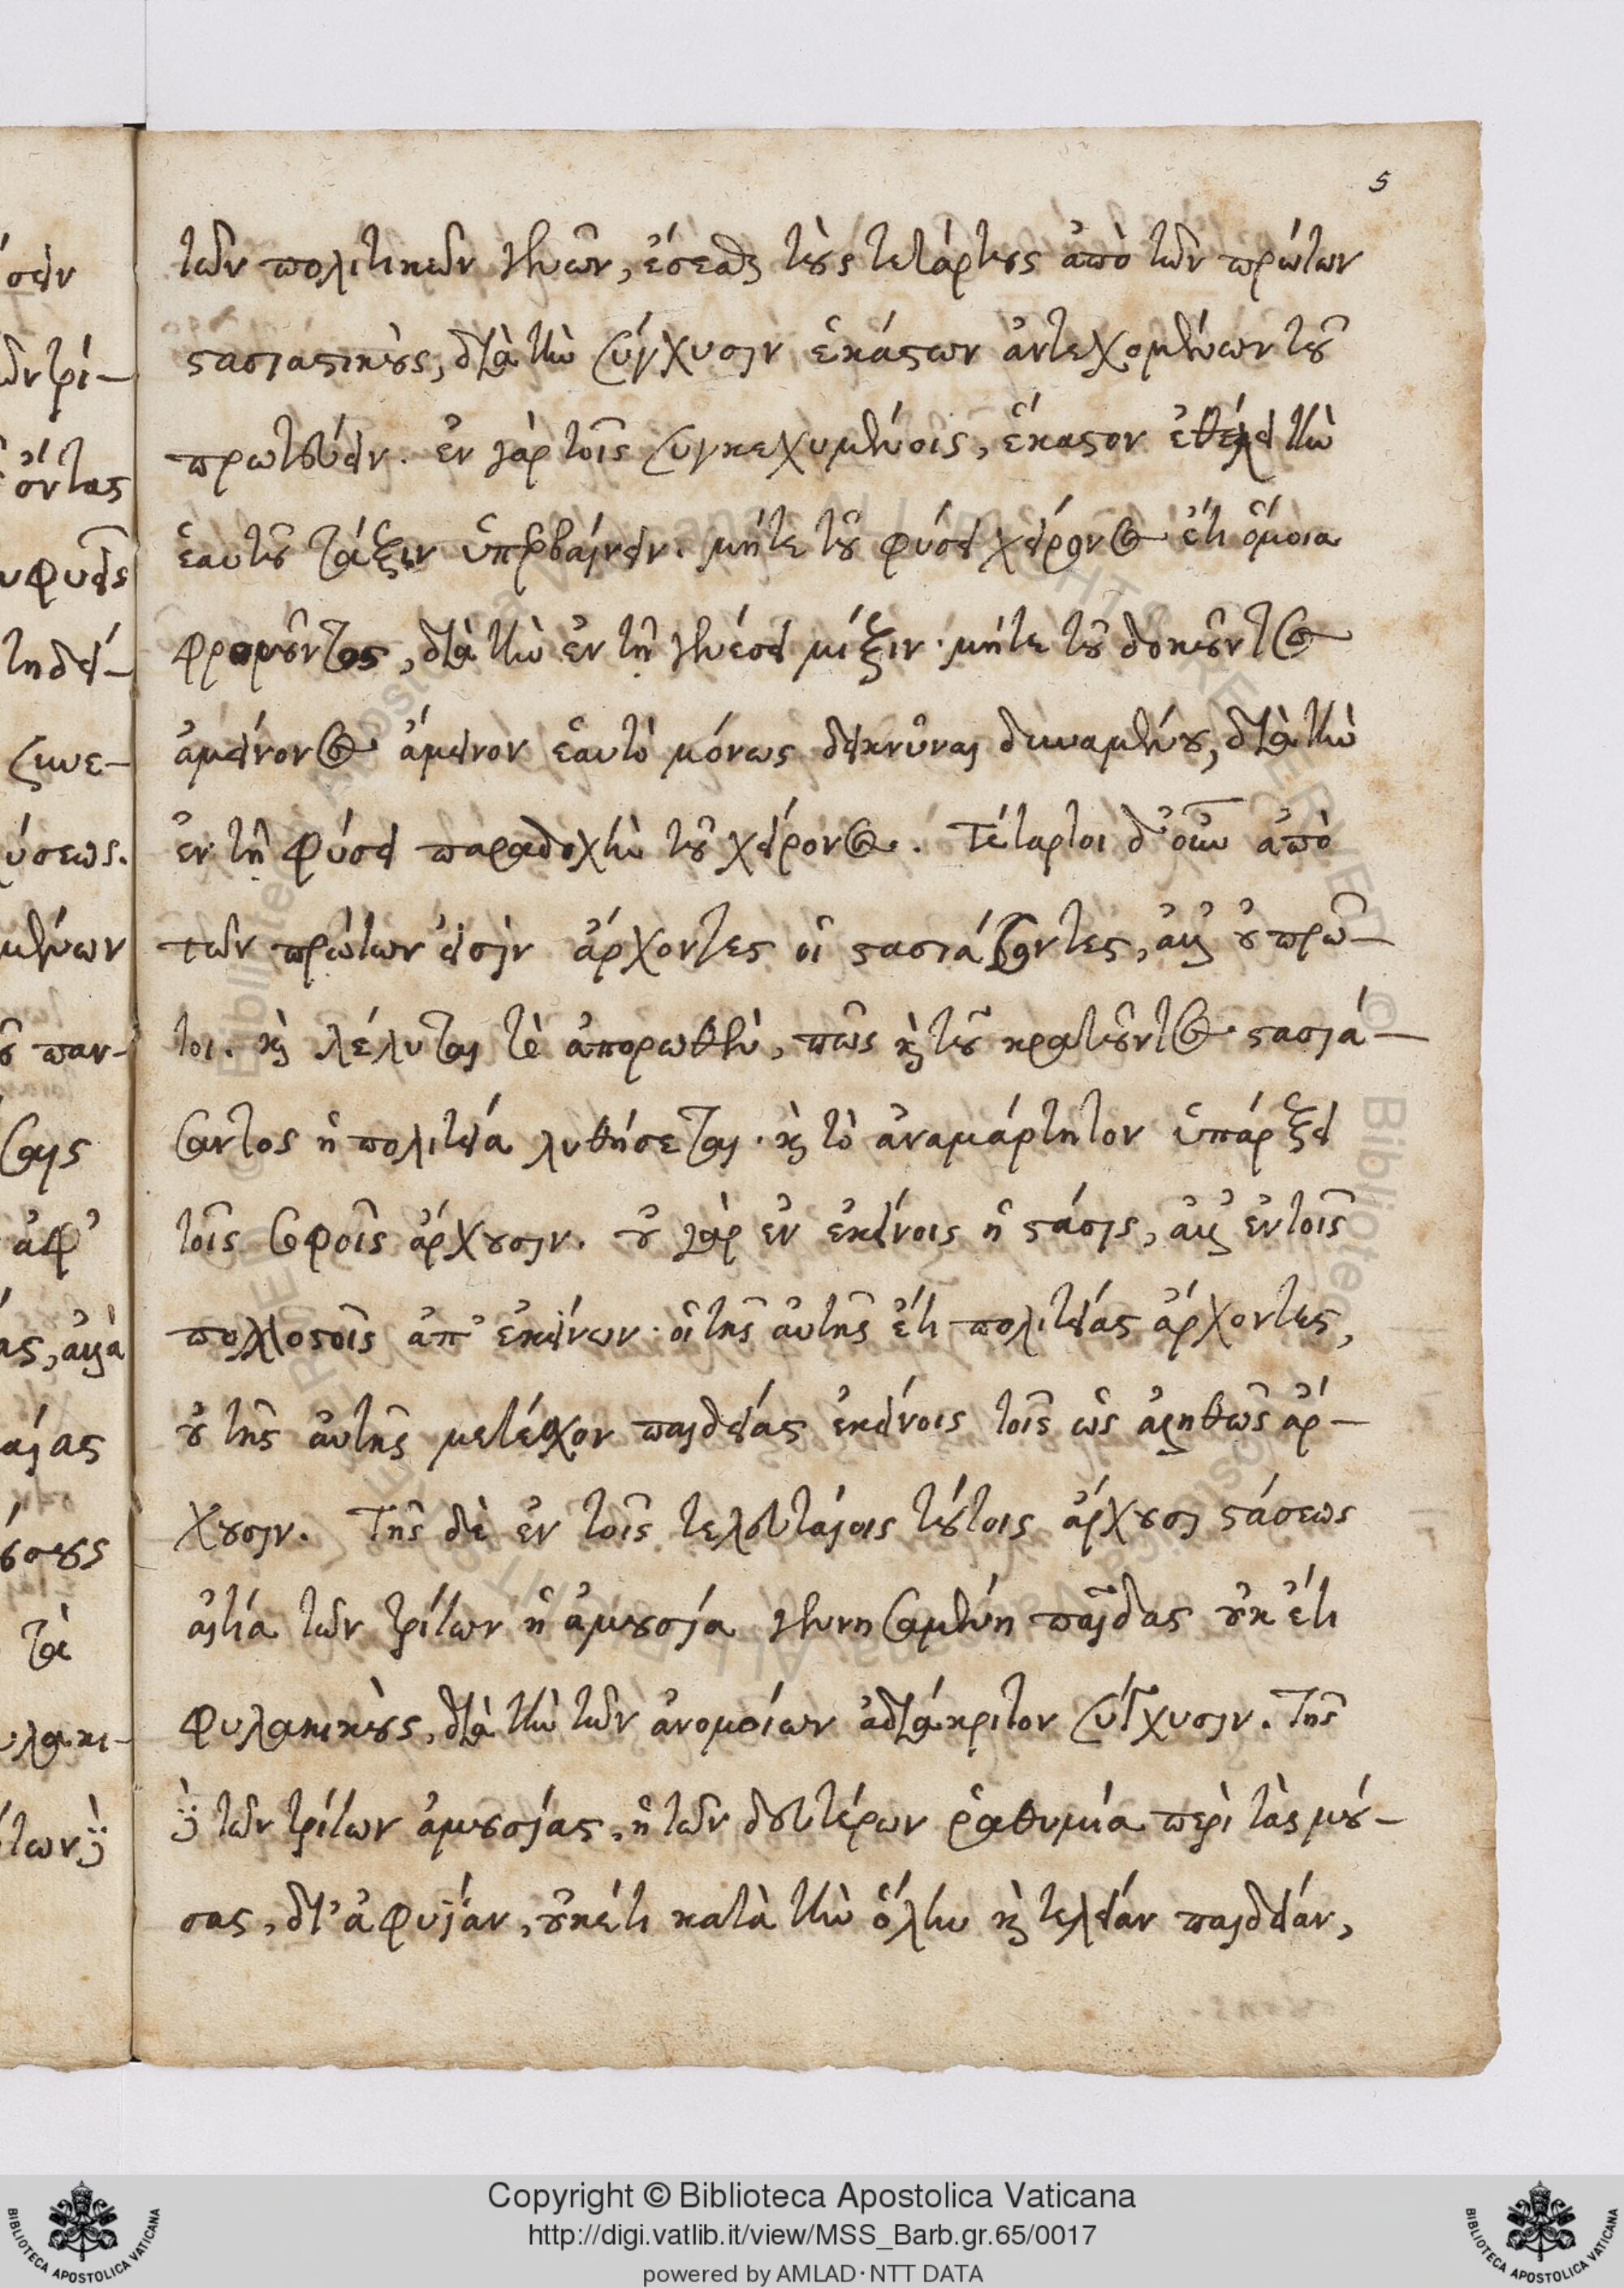 5
τῶν πολιτικῶν γενῶν, ἔσεσθαι τοὺς τετάρτους ἀπὸ τῶν πρώτων
στασιαστικοὺς, διὰ τὴν σύγχυσιν ἑκάστων ἀντεχομένων τοῦ
πρωτεύειν. ἐν γὰρ τοῖς συγκεχυμένοις, ἕκαστον ἐθέλει τὴν
ἑαυτοῦ τάξιν ὑπερβαίνειν. μήτε τοῦ φύσει χείρονος ἔτι ὅμοια
φρονοῦντος, διὰ τὴν ἐν τῇ γενέσει μίξιν· μήτε τοῦ δοκοῦντος
ἀμείνονος ἄμεινον ἑαυτὸ μόνως δεικνύναι δυναμένου, διὰ τὴν
ἐν τῇ φύσει παραδοχὴν τοῦ χείρονος. Τέταρτοι δ' οὖν ἀπὸ
τῶν πρώτων εἰσὶν ἄρχοντες οἱ στασιάζοντες, ἀλλ' οὐ πρῶ-
τοι. καὶ λέλυται τὸ ἀπορωθὲν, πῶς καὶ τοῦ κρατοῦντος στασιά-
σαντος ἡ πολιτεία λυθήσεται. καὶ τὸ ἀναμάρτητον ὑπάρξει
τοῖς σοφοῖς ἄρχουσιν. οὐ γὰρ ἐν ἐκείνοις ἡ στάσις, ἀλλ' ἐν τοῖς
πολλοστοῖς ἀπ' ἐκείνων· οἳ τῆς αὐτῆς ἔτι πολιτείας ἄρχοντες,
οὐ τῆς αὐτῆς μετέσχον παιδείας ἐκείνοις τοῖς ὡς ἀληθῶς ἄρ-
χουσιν. Τῆς δὲ ἐν τοῖς τελευταίοις τούτοις ἄρχουσι στάσεως
αἰτία τῶν τρίτων ἡ ἀμουσία γεννησαμένη παῖδας οὐκ ἔτι
φυλακικοὺς, διὰ τὴν τῶν ἀνομοίων ἀδιάκριτον σύγχυσιν. τῆς
δὲ τῶν τρίτων ἀμουσίας, ἡ τῶν δευτέρων ῥαθυμία περὶ τὰς μού-
σας, δι' ἀφυίαν, οὐκέτι κατὰ τὴν ὅλην καὶ τελείαν παιδείαν,
Copyright © Biblioteca Apostolica Vaticana
http://digi.vatlib.it/view/MSS_Barb.gr.65/0017
powered by AMLAD·NTT DATA
BIBLIOTECA APOSTOLICA VATICANA
BIBLIOTECA APOSTOLICA VATICANA